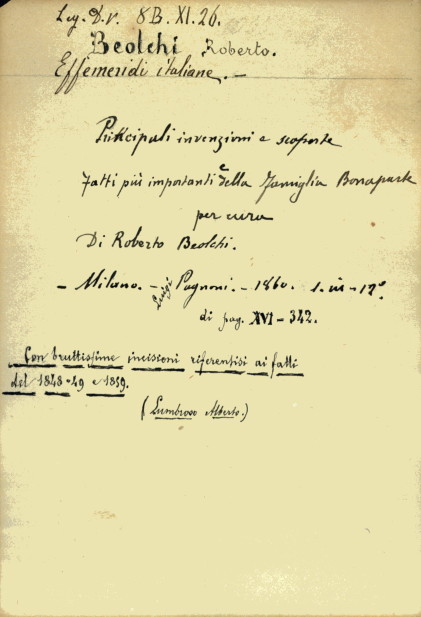 Leg. D.v. 8B.XI.26.
Beolchi Roberto.
Effemeridi italiane.—
Principali invenzioni e scoperte
Fatti più importanti e della Famiglia Bonaparte
per cura
Di Roberto Beolchi.
— Milano. — Luigi Pagnoni. — 1860. 1. in - 12°.
di pag. XVI - 342.
Con bruttissime incisioni riferentisi ai fatti
del 1848-49 e 1859.
(Lumbroso Alberto.)